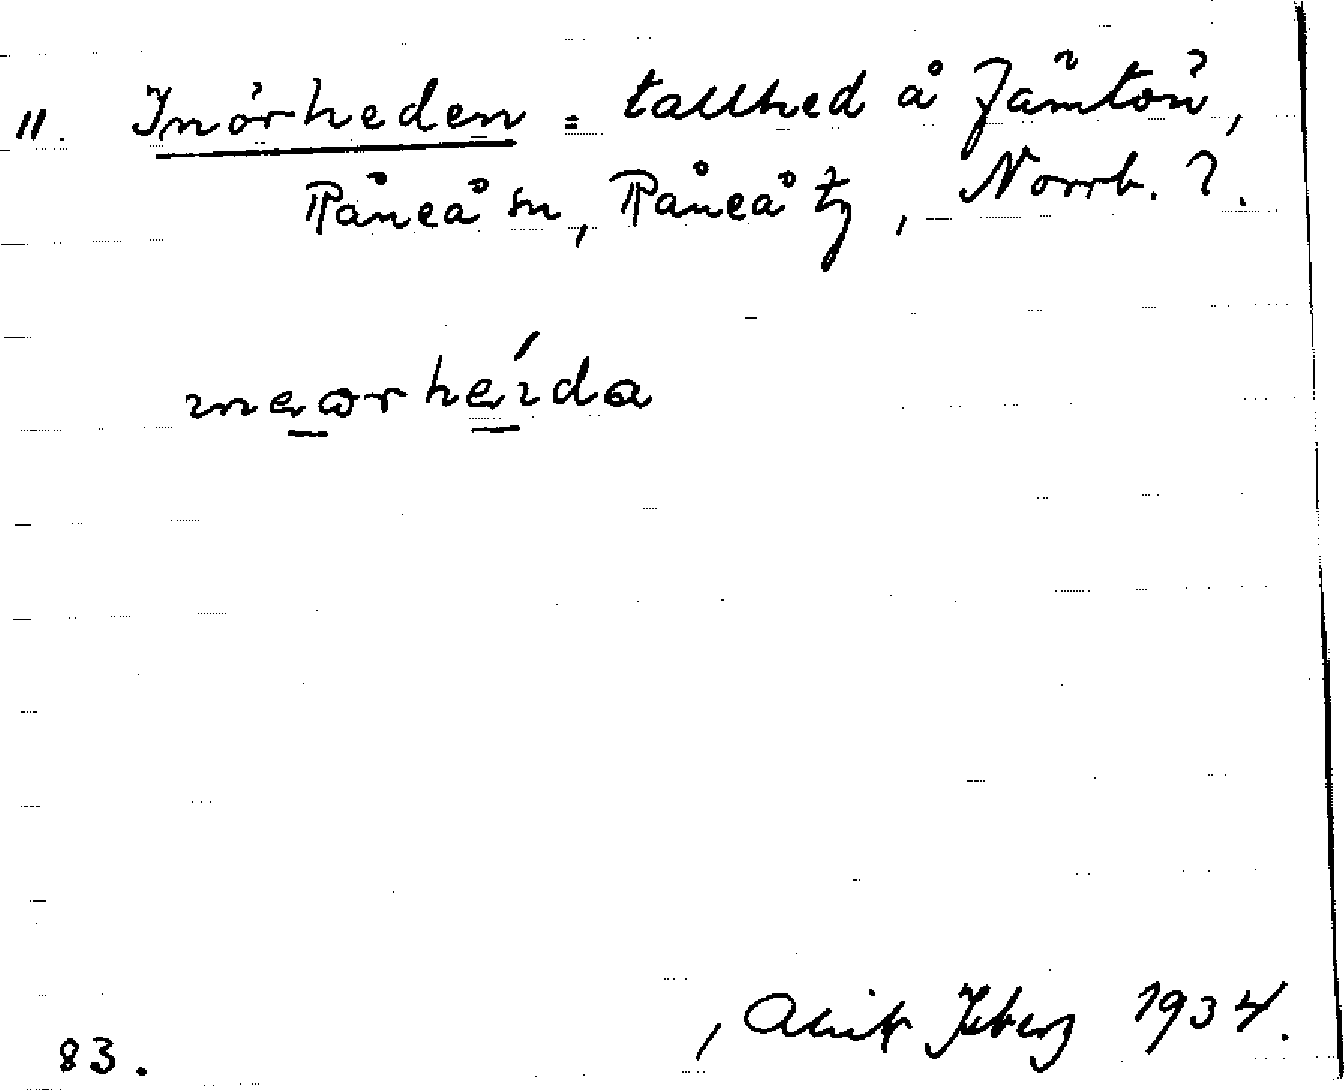 11. Inörheden = tallhed å Jämtön,
Råneå sn, Råneå tg, Norrb. ?.
ineorheida
83.
, Alrik Isberg 1934.